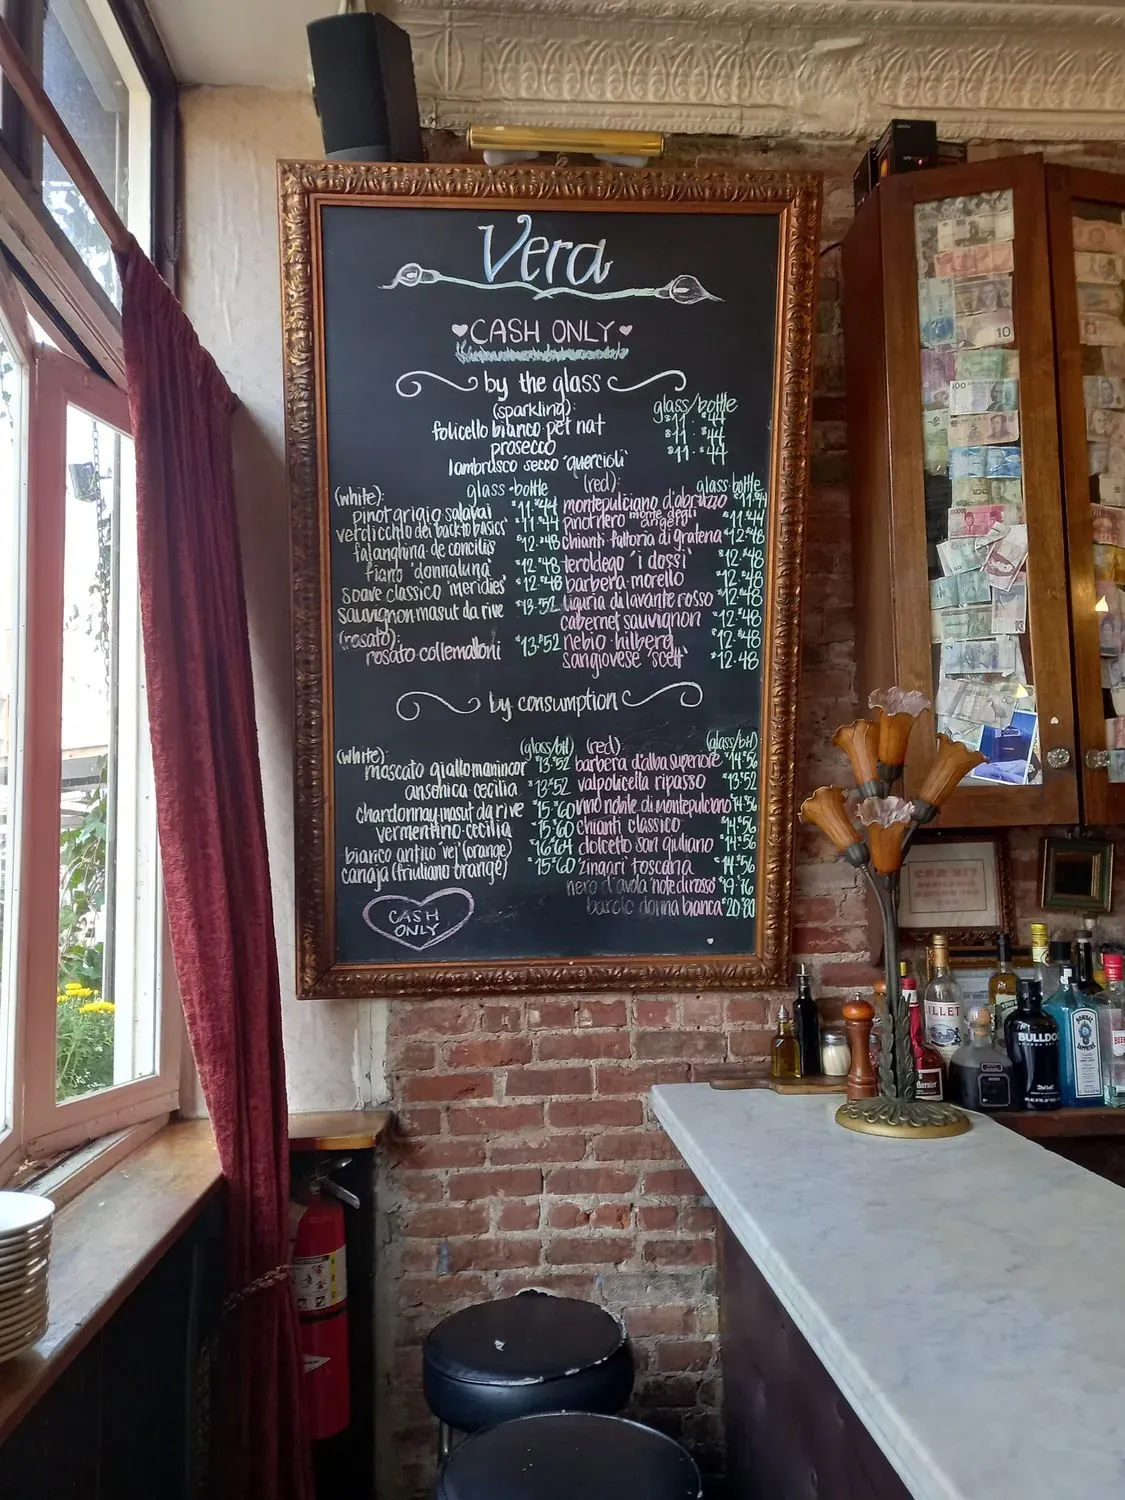 Vera
CASH ONLY
by the glass
(sparkling): glass/bottle
folicello bianco pet nat $11 · $44
prosecco $11 · $44
lambrusco secco 'quercioli' $11 · $44
(white): glass·bottle
pinot grigio salatai $11·$44
verdicchio dei back to basics $11·$44
falanghina de concilis $12·$48
fiano 'donnaluna' $12·$48
soave classico 'meridies' $12·$48
sauvignon masut da rive $13·$52
(rosato):
rosato collemattoni $13·$52
(red): glass·bottle
montepulciano d'abruzzo $11·$44
pinot nero monte degli angeli $11·$44
chianti fattoria di gratena $12·$48
teroldego "i dossi" $12·$48
barbera morello $12·$48
liguria da lavante rosso $12·$48
cabernet sauvignon $12·$48
nebio hilberg $12·$48
sangiovese 'scett' $12·48
by consumption
(white): (glass/btl)
moscato giallo manincor $13·$52
ansonica cecilia $13·$52
chardonnay masut da rive $15·$60
vermentino cecilia $15·$60
bianco antico 'vej' (orange) $16·64
canaja (friuliano orange) $15·$60
(red): (glass/btl)
barbera d'alba superiore $14·$56
valpolicella ripasso $13·$52
vino nobile di montepulciano $14·$56
chianti classico $14·$56
dolcetto san giuliano $14·$56
zingari toscana $14·$56
nero d'avola 'note di rosso' $19·76
barolo donna bianca $20·$80
CASH
ONLY
10
100
LILLET
BULLDOG
BOMBAY